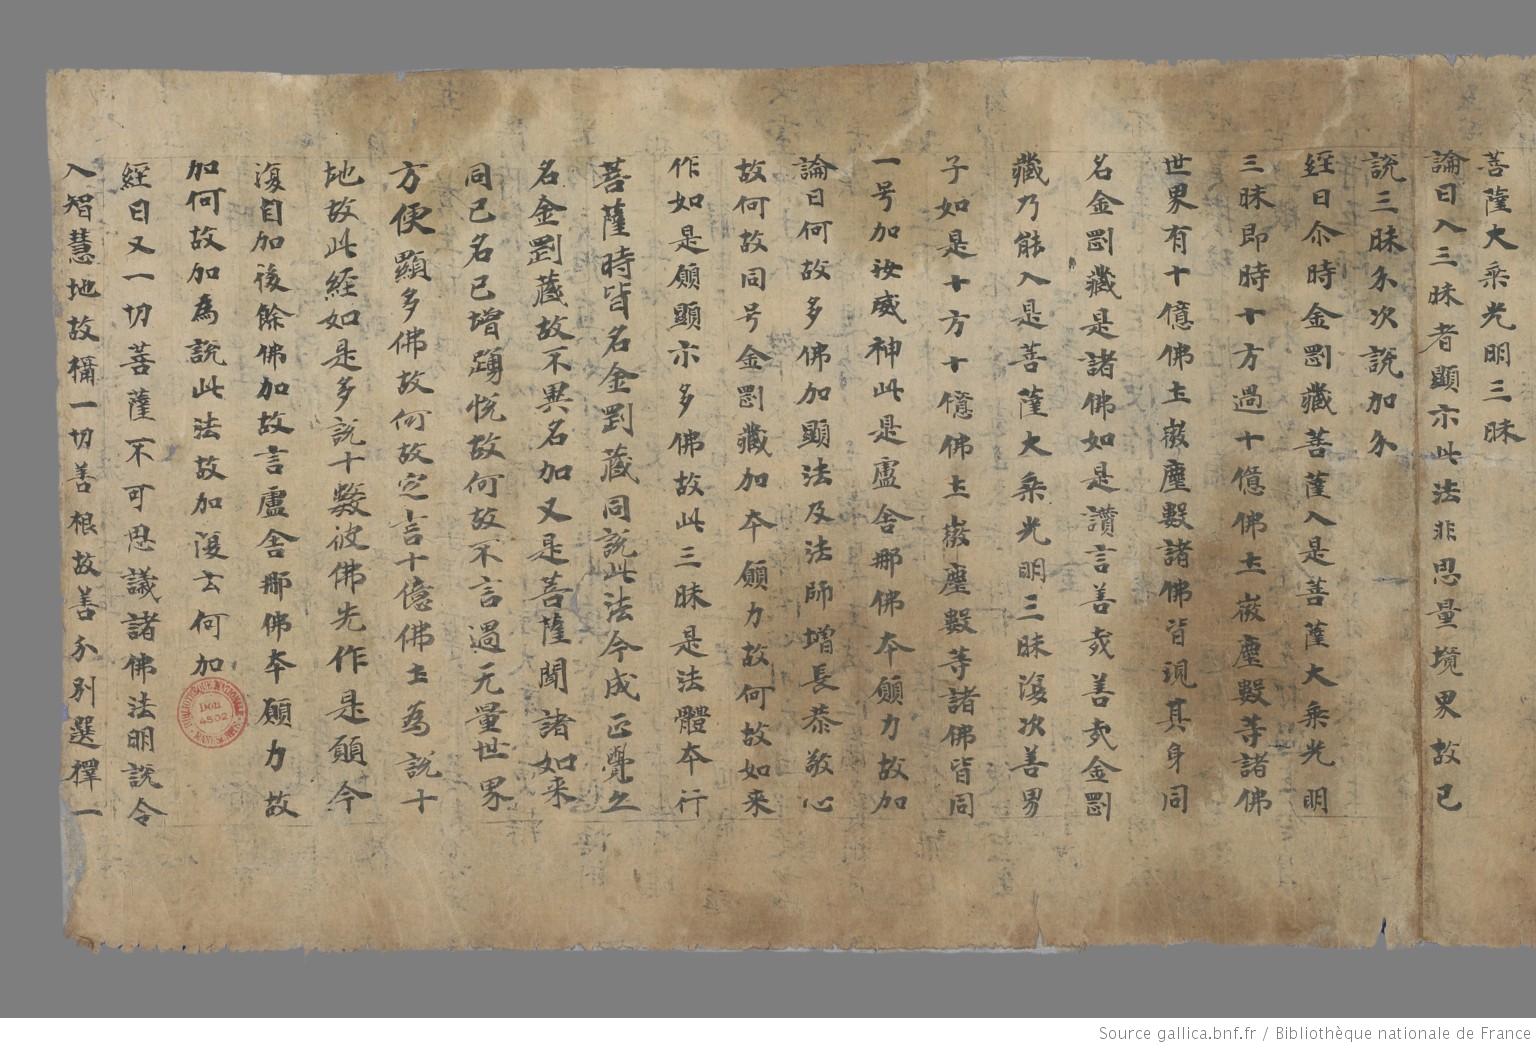 菩薩大乘光明三昧
論曰入三昧者顯示此法非思量境界故已
說三昧分次說加分
經曰尒時金剛藏菩薩入是菩薩大乘光明
三昧即時十方過十億佛土㣲塵數等諸佛
世界有十億佛土㣲塵數諸佛皆現其身同
名金剛藏是諸佛如是讚言善㢤善㢤金剛
藏乃能入是菩薩大乘光明三昧復次善男
子如是十方十億佛土㣲塵數等諸佛皆同
一号加汝威神此是盧舍那佛本願力故加
論曰何故多佛加顯法及法師增長恭敬心
故何故同号金剛藏加本願力故何故如来
作如是願顯示多佛故此三昧是法體本行
菩薩時皆名金剛藏同說此法今成正覺㞐
名金剛藏故不異名加又是菩薩聞諸如来
同己名已增踊悅故何故不言過无量世界
方便顯多佛故何故定言十億佛土為說十
地故此経如是多說十數彼佛先作是願今
復自加後餘佛加故言盧舍那佛本願力故
加何故加為說此法故加復云何加
經曰又一切菩薩不可思議諸佛法明說令
入智慧地故稱一切善根故善分别選擇一
BIBLIOTHÈQUE NATIONALE
DON
4502
MANUSC.
Source gallica.bnf.fr / Bibliothèque nationale de France